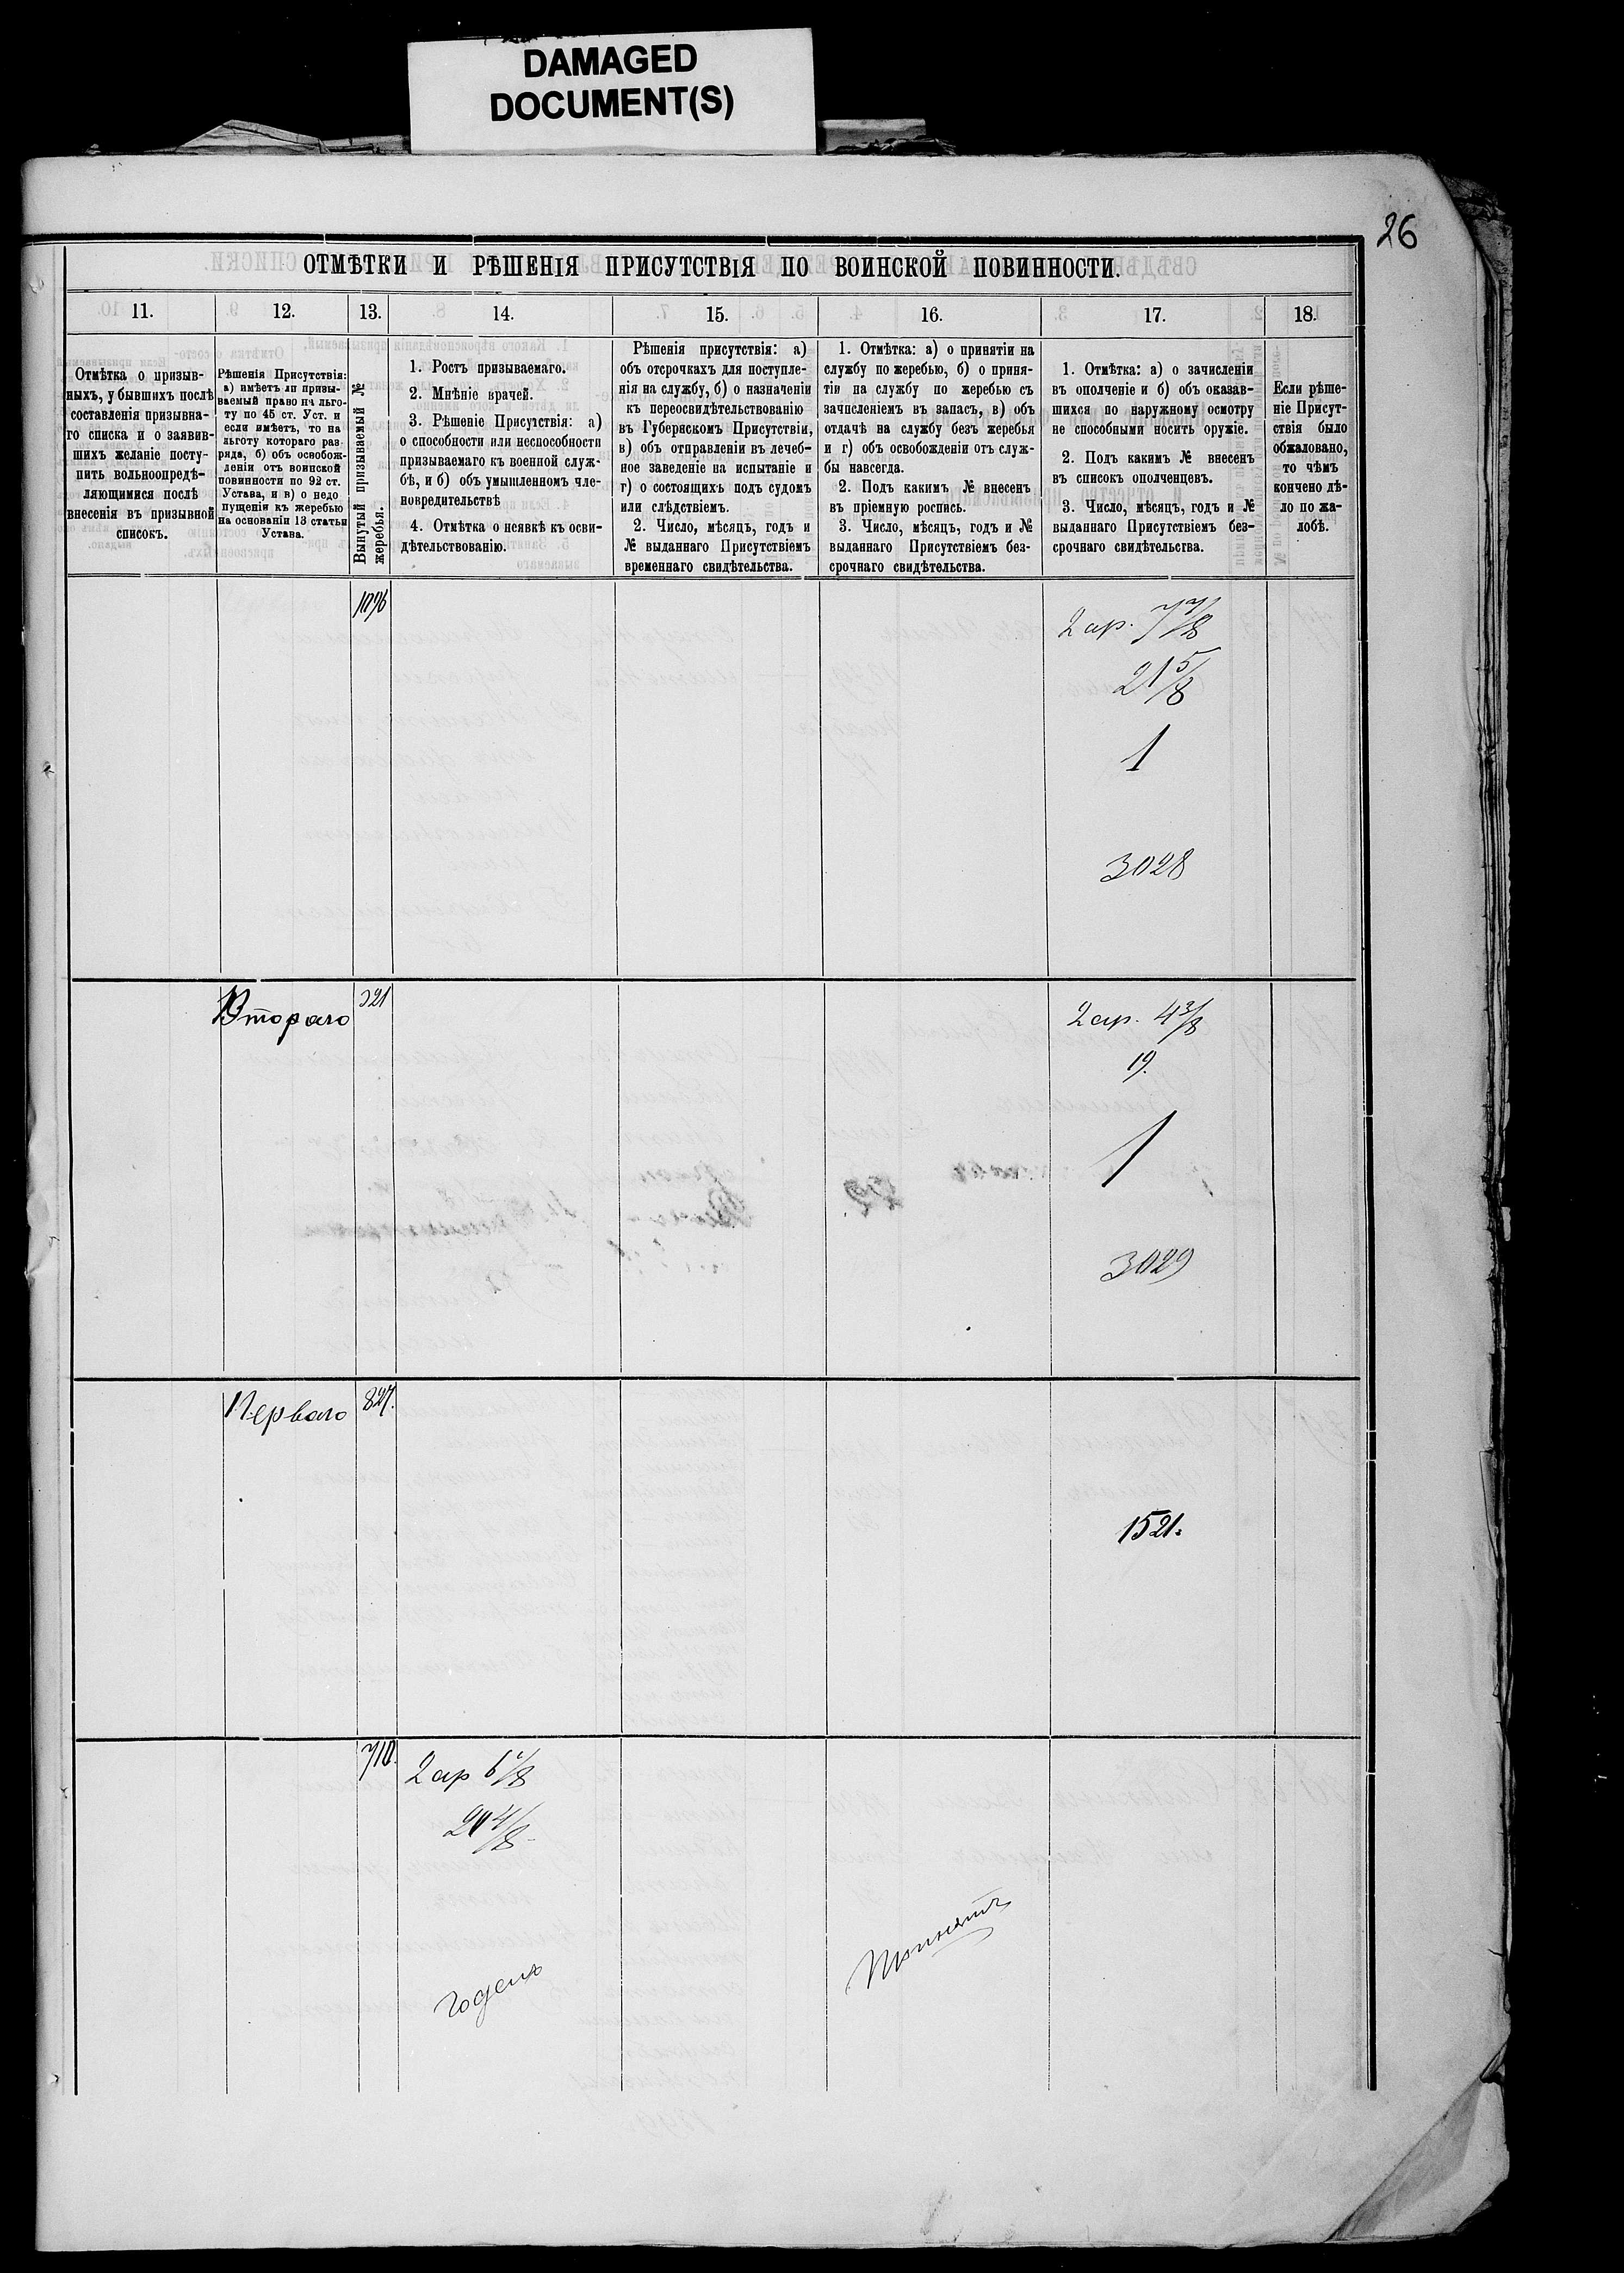 DAMAGED
DOCUMENT(S)
26
ОТМѢТКИ И РѢШЕНІЯ ПРИСУТСТВІЯ ПО ВОИНСКОЙ ПОВИННОСТИ.
11. 12. 13. 14. 15. 16. 17. 18.
Отмѣтка о призыв-
ныхъ, у бывшихъ послѣ
составленія призывна-
го списка и о заявив-
шихъ желаніе посту-
пить вольноопредѣ-
ляющимися послѣ
внесенія въ призывной
списокъ.
Рѣшенія Присутствія:
а) имѣетъ ли призы-
ваемый право на льго-
ту по 45 ст. Уст. и
если имѣетъ, то на
льготу котораго раз-
ряда, б) объ освобож-
деніи отъ воинской
повинности по 92 ст.
Устава, и в) о недо
пущеніи къ жеребью
на основаніи 13 статьи
Устава.
Вынутый призываемый №
жеребья.
1. Ростъ призываемаго.
2. Мнѣніе врачей.
3. Рѣшеніе Присутствія: а)
о способности или неспособности
призываемаго къ военной служ-
бѣ, и б) объ умышленномъ чле-
новредительствѣ
4. Отмѣтка о неявкѣ къ осви-
дѣтельствованію.
Рѣшенія присутствія: а)
объ отсрочкахъ для поступле-
нія на службу, б) о назначеніи
къ переосвидѣтельствованію
въ Губернскомъ Присутствіи,
в) объ отправленіи въ лечеб-
ное заведеніе на испытаніе и
г) о состоящихъ подъ судомъ
или слѣдствіемъ.
2. Число, мѣсяцъ, годъ и
№ выданнаго Присутствіемъ
временнаго свидѣтельства.
1. Отмѣтка: а) о принятіи на
службу по жеребью, б) о приня-
тіи на службу по жеребью съ
зачисленіемъ въ запасъ, в) объ
отдачѣ на службу безъ жеребья
и г) объ освобожденіи отъ служ-
бы навсегда.
2. Подъ какимъ № внесенъ
въ пріемную роспись.
3. Число, мѣсяцъ, годъ и №
выданнаго Присутствіемъ без-
срочнаго свидѣтельства.
1. Отмѣтка: а) о зачисленіи
въ ополченіе и б) объ оказав-
шихся по наружному осмотру
не способными носить оружіе.
2. Подъ какимъ № внесенъ
въ списокъ ополченцевъ.
3. Число, мѣсяцъ, годъ и №
выданнаго Присутствіемъ без-
срочнаго свидѣтельства.
Если рѣше-
ніе Присут-
ствія было
обжаловано,
то чѣмъ
кончено дѣ-
ло по жа-
лобѣ.
1096
2 ар. 7 7/8
21 5/8
1
3028
Втораго
321
2 ар. 4 3/8
19.
1
3029
Перваго
827.
1521.
710.
2 ар 6 1/8
20 4/8
годенъ
Принятъ